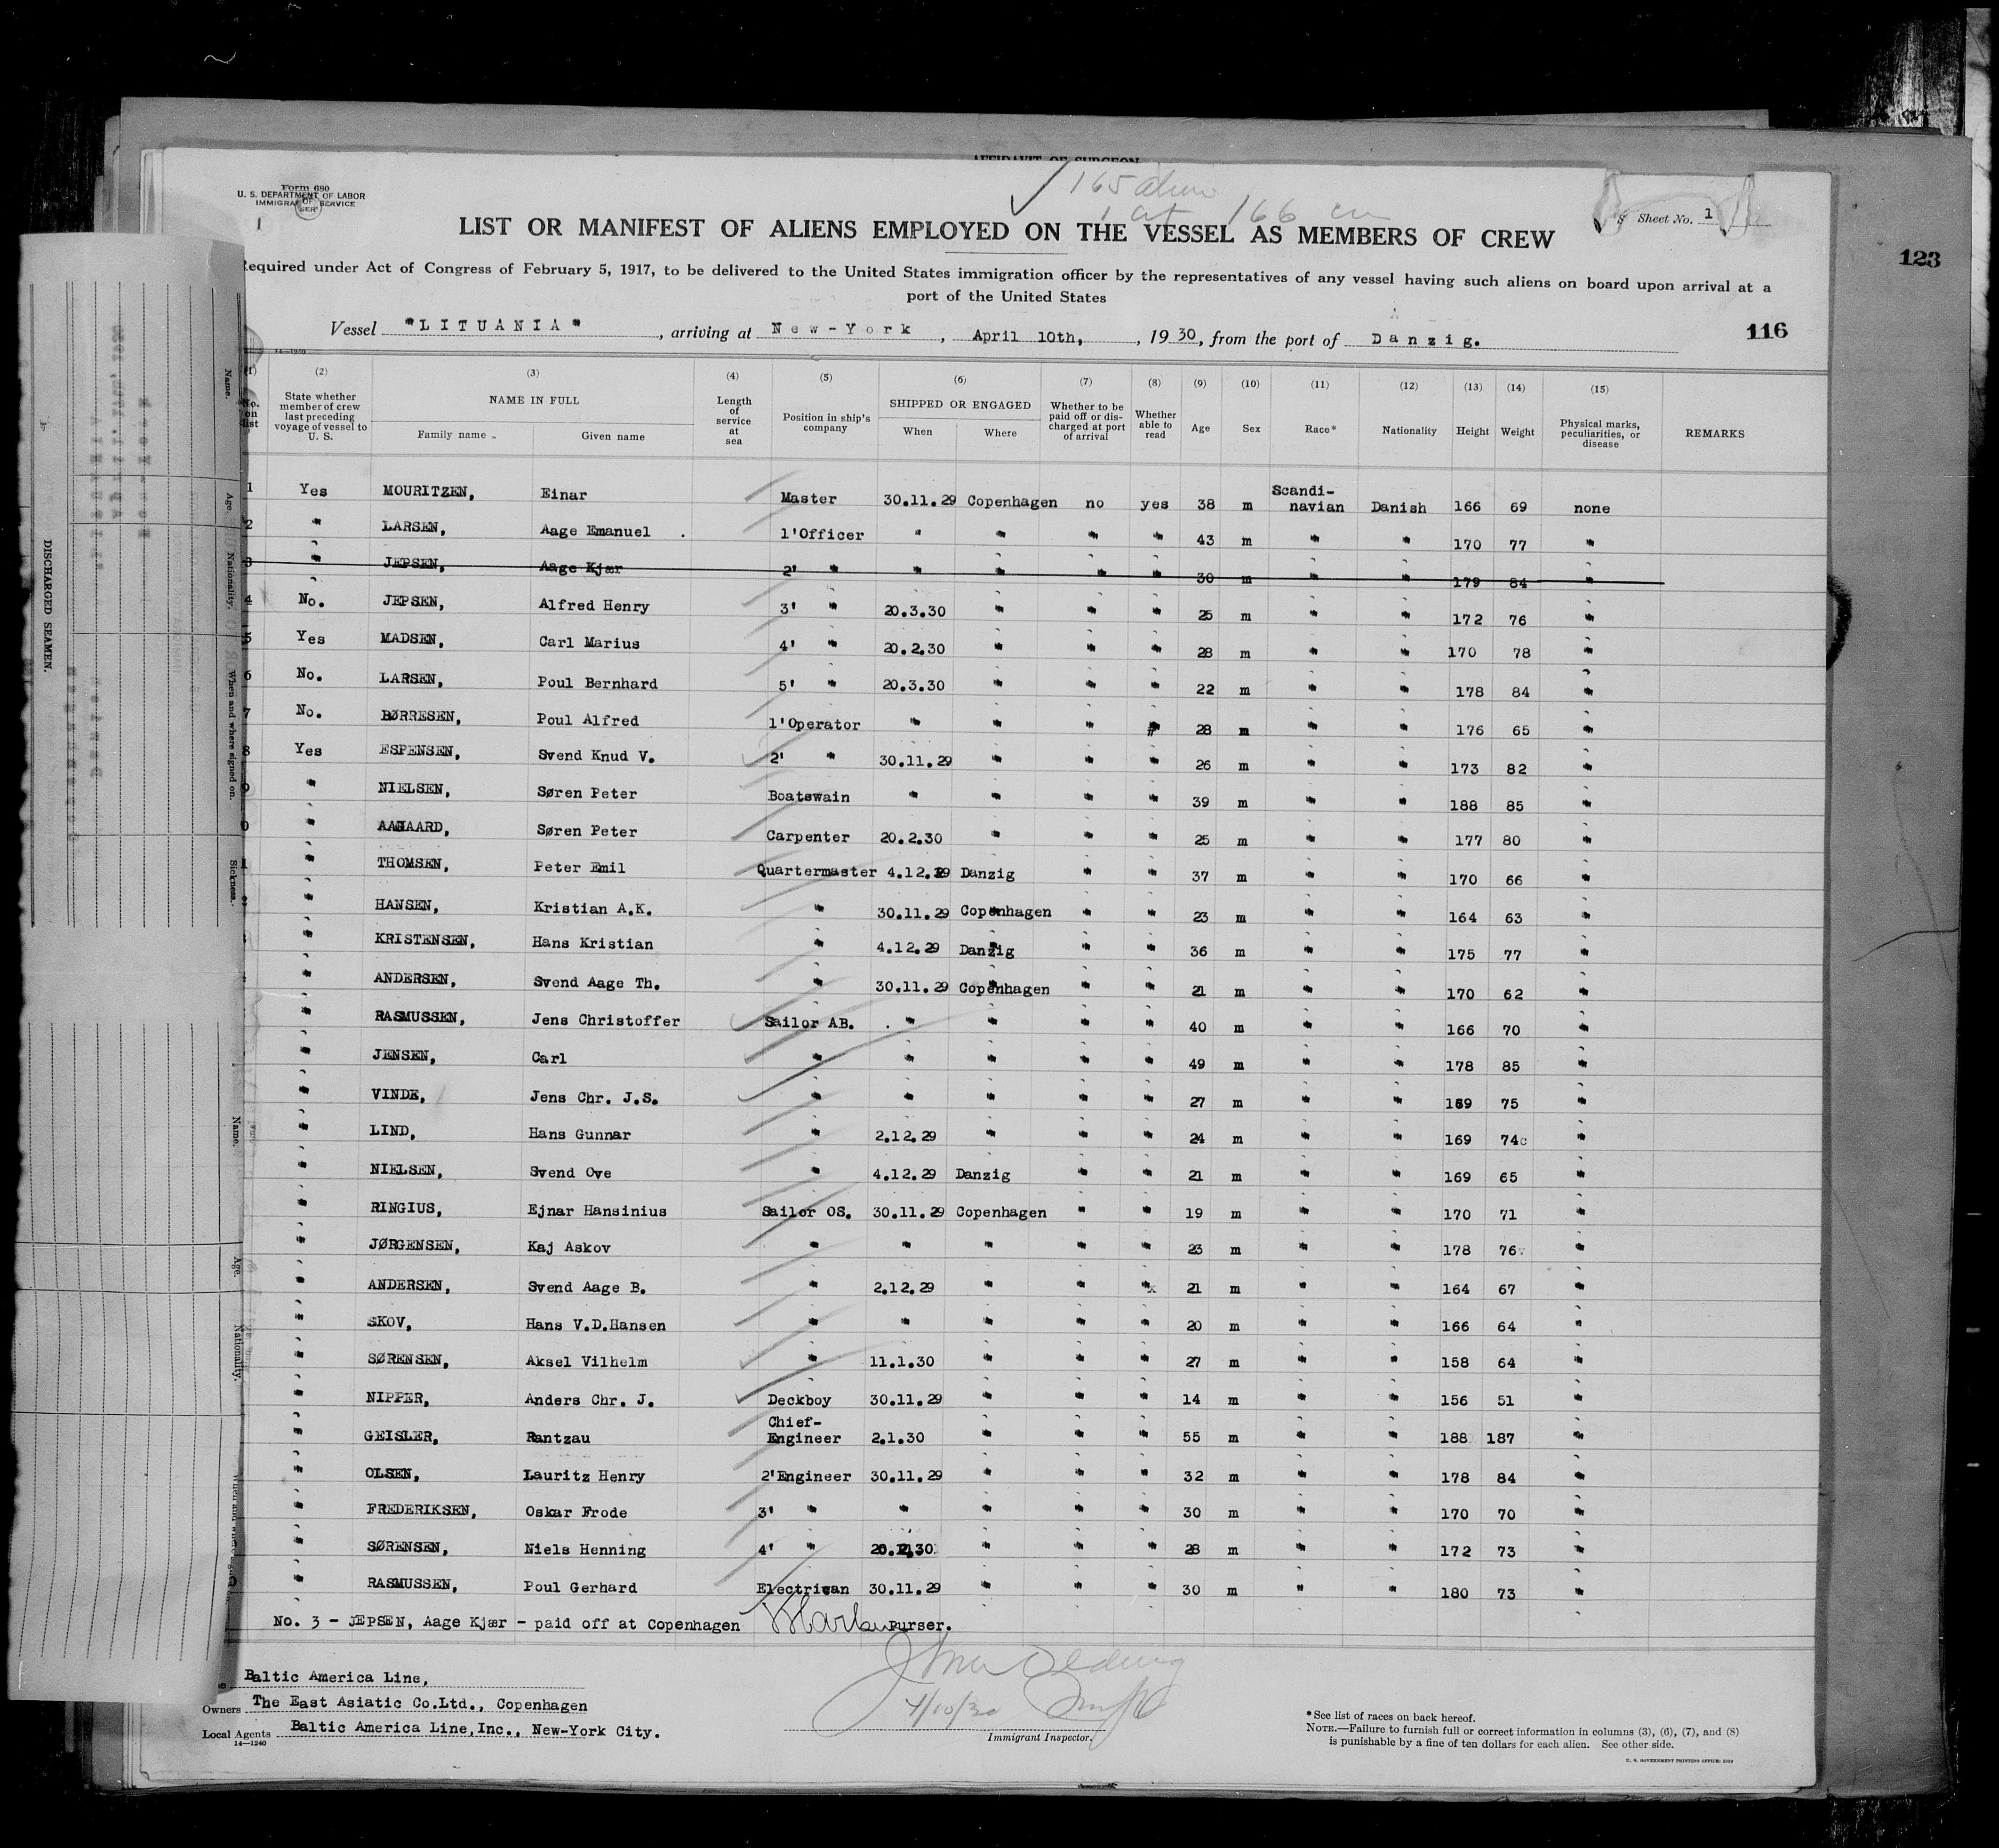 AFFIDAVIT OF SURGEON
Form 680
U. S. DEPARTMENT OF LABOR
IMMIGRATION SERVICE
1
165
166
Sheet No. 1
LIST OR MANIFEST OF ALIENS EMPLOYED ON THE VESSEL AS MEMBERS OF CREW
123
Required under Act of Congress of February 5, 1917, to be delivered to the United States immigration officer by the representatives of any vessel having such aliens on board upon arrival at a
port of the United States
Vessel "LITUANIA", arriving at New-York, April 10th, , 1930, from the port of Danzig.
116
14—1240
(1) (2) (3) (4) (5) (6) (7) (8) (9) (10) (11) (12) (13) (14) (15)
No. on list State whether member of crew last preceding voyage of vessel to U. S. NAME IN FULL Family name Given name Length of service at sea Position in ship's company SHIPPED OR ENGAGED When Where Whether to be paid off or discharged at port of arrival Whether able to read Age Sex Race* Nationality Height Weight Physical marks, peculiarities, or disease REMARKS
1 Yes MOURITZEN, Einar Master 30.11.29 Copenhagen no yes 38 m Scandi-navian Danish 166 69 none
2 " LARSEN, Aage Emanuel 1'Officer " " " " 43 m " " 170 77 "
3 " JEPSEN, Aage Kjær 2' " " " " " 30 m " " 179 84 "
4 No. JEPSEN, Alfred Henry 3' " 20.3.30 " " " 25 m " " 172 76 "
5 Yes MADSEN, Carl Marius 4' " 20.2.30 " " " 28 m " " 170 78 "
6 No. LARSEN, Poul Bernhard 5' " 20.3.30 " " " 22 m " " 178 84 "
7 No. BØRRESEN, Poul Alfred 1'Operator " " " " 28 m " " 176 65 "
8 Yes ESPENSEN, Svend Knud V. 2' " 30.11.29 " " " 26 m " " 173 82 "
" NIELSEN, Søren Peter Boatswain " " " " 39 m " " 188 85 "
0 " AAGAARD, Søren Peter Carpenter 20.2.30 " " " 25 m " " 177 80 "
1 " THOMSEN, Peter Emil Quartermaster 4.12.29 Danzig " " 37 m " " 170 66 "
" HANSEN, Kristian A.K. " 30.11.29 Copenhagen " " 23 m " " 164 63 "
" KRISTENSEN, Hans Kristian " 4.12.29 Danzig " " 36 m " " 175 77 "
" ANDERSEN, Svend Aage Th. " 30.11.29 Copenhagen " " 21 m " " 170 62 "
" RASMUSSEN, Jens Christoffer Sailor AB. " " " " 40 m " " 166 70 "
" JENSEN, Carl " " " " " 49 m " " 178 85 "
" VINDE, Jens Chr. J.S. " " " " " 27 m " " 169 75 "
" LIND, Hans Gunnar " 2.12.29 " " " 24 m " " 169 74 "
" NIELSEN, Svend Ove " 4.12.29 Danzig " " 21 m " " 169 65 "
" RINGIUS, Ejnar Hansinius Sailor OS. 30.11.29 Copenhagen " " 19 m " " 170 71 "
" JØRGENSEN, Kaj Askov " " " " " 23 m " " 178 76 "
" ANDERSEN, Svend Aage B. " 2.12.29 " " " 21 m " " 164 67 "
" SKOV, Hans V.D.Hansen " " " " " 20 m " " 166 64 "
" SØRENSEN, Aksel Vilhelm " 11.1.30 " " " 27 m " " 158 64 "
" NIPPER, Anders Chr. J. Deckboy 30.11.29 " " " 14 m " " 156 51 "
" GEISLER, Rantzau Chief-Engineer 2.1.30 " " " 55 m " " 188 187 "
" OLSEN, Lauritz Henry 2'Engineer 30.11.29 " " " 32 m " " 178 84 "
" FREDERIKSEN, Oskar Frode 3' " " " " " 30 m " " 170 70 "
" SØRENSEN, Niels Henning 4' " " " " 28 m " " 172 73 "
" RASMUSSEN, Poul Gerhard Electrican 30.11.29 " " " 30 m " " 180 73 "
No. 3 - JEPSEN, Aage Kjær - paid off at Copenhagen Purser.
Baltic America Line,
Owners The East Asiatic Co.Ltd., Copenhagen
Local Agents Baltic America Line,Inc., New-York City.
14—1240
4/10/30
Immigrant Inspector.
*See list of races on back hereof.
NOTE.—Failure to furnish full or correct information in columns (3), (6), (7), and (8)
is punishable by a fine of ten dollars for each alien. See other side.
U. S. GOVERNMENT PRINTING OFFICE: 1929
DISCHARGED SEAMEN.
Name.
Age.
Nationality.
When and where signed on.
Sickness.
Name.
Age.
Nationality.